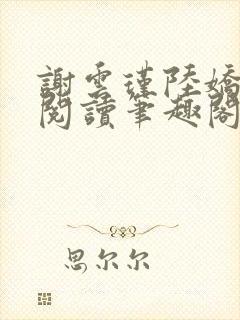 謝雲瑾陸嬌
閱讀筆趣閣
思尔尔